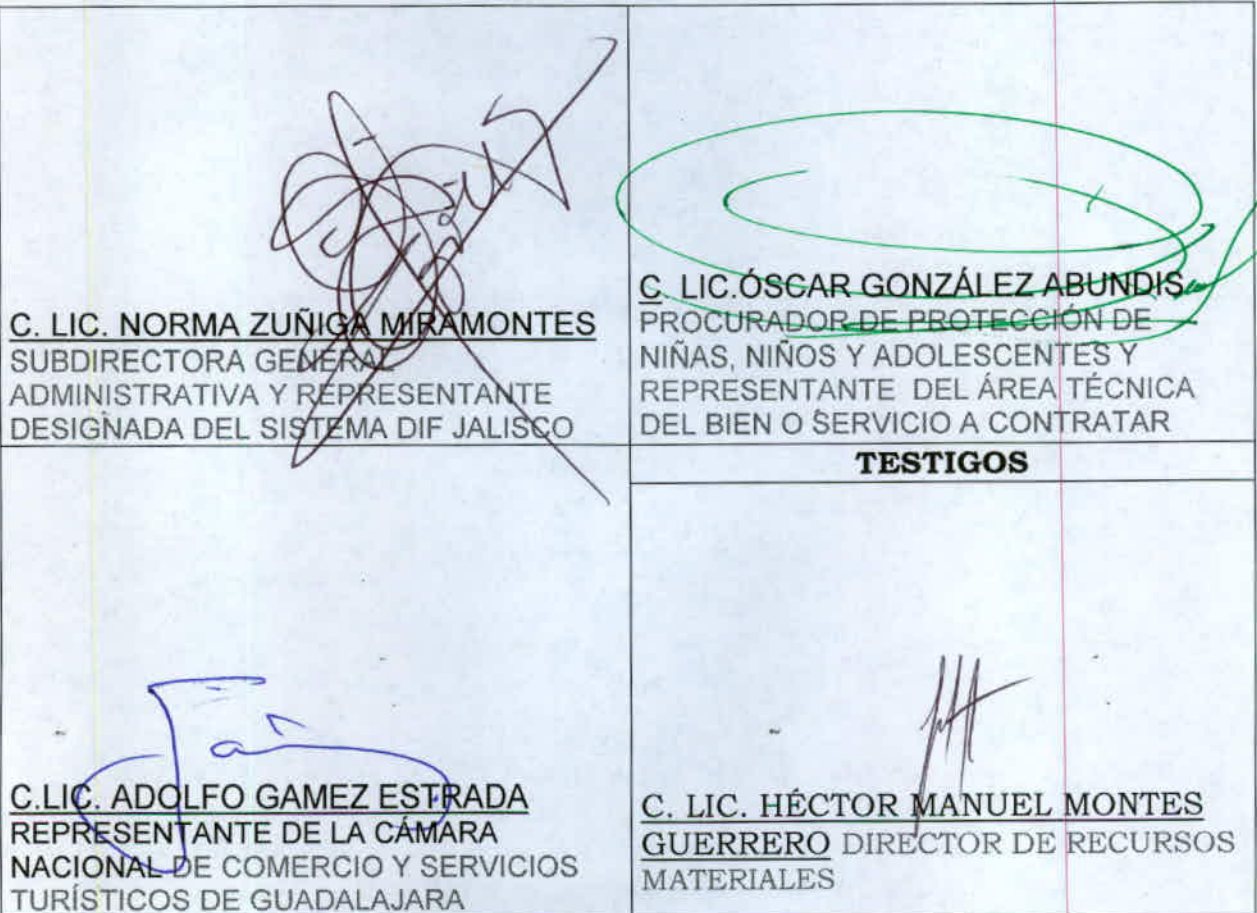 C. LIC. NORMA ZUÑIGA MIRAMONTES
SUBDIRECTORA GENERAL
ADMINISTRATIVA Y REPRESENTANTE
DESIGNADA DEL SISTEMA DIF JALISCO
C. LIC.ÓSCAR GONZÁLEZ ABUNDIS
PROCURADOR DE PROTECCIÓN DE
NIÑAS, NIÑOS Y ADOLESCENTES Y
REPRESENTANTE DEL ÁREA TÉCNICA
DEL BIEN O SERVICIO A CONTRATAR
TESTIGOS
C.LIC. ADOLFO GAMEZ ESTRADA
REPRESENTANTE DE LA CÁMARA
NACIONAL DE COMERCIO Y SERVICIOS
TURÍSTICOS DE GUADALAJARA
C. LIC. HÉCTOR MANUEL MONTES
GUERRERO DIRECTOR DE RECURSOS
MATERIALES